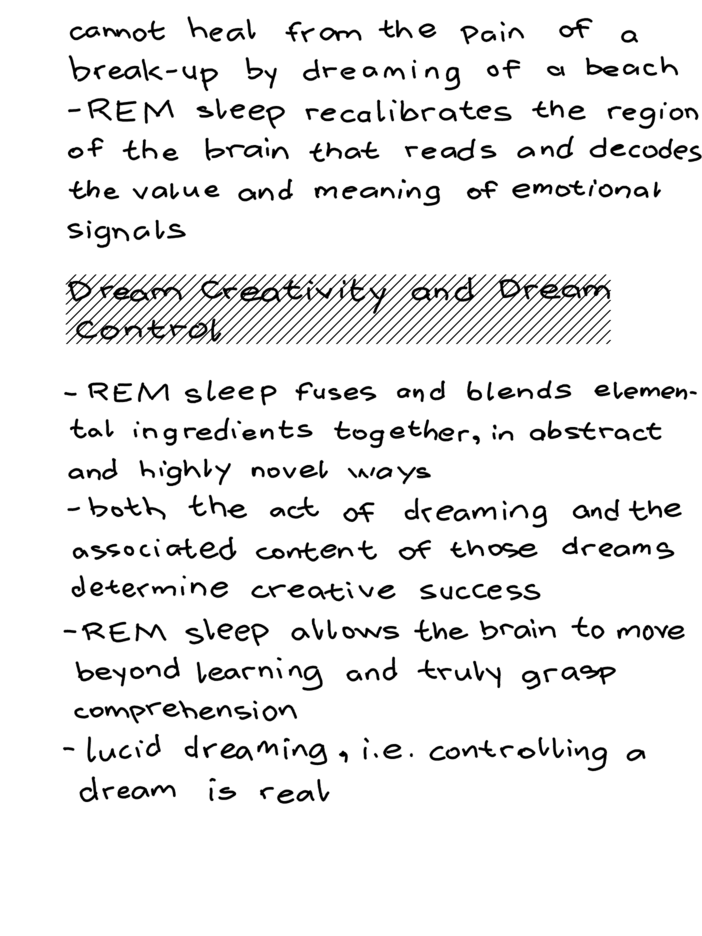 cannot heal from the pain of a
break-up by dreaming of a beach
-REM sleep recalibrates the region
of the brain that reads and decodes
the value and meaning of emotional
signals
Dream Creativity and Dream
Control
- REM sleep fuses and blends elemen-
tal ingredients together, in abstract
and highly novel ways
-both the act of dreaming and the
associated content of those dreams
determine creative success
-REM sleep allows the brain to move
beyond learning and truly grasp
comprehension
- lucid dreaming, i.e. controlling a
dream is real